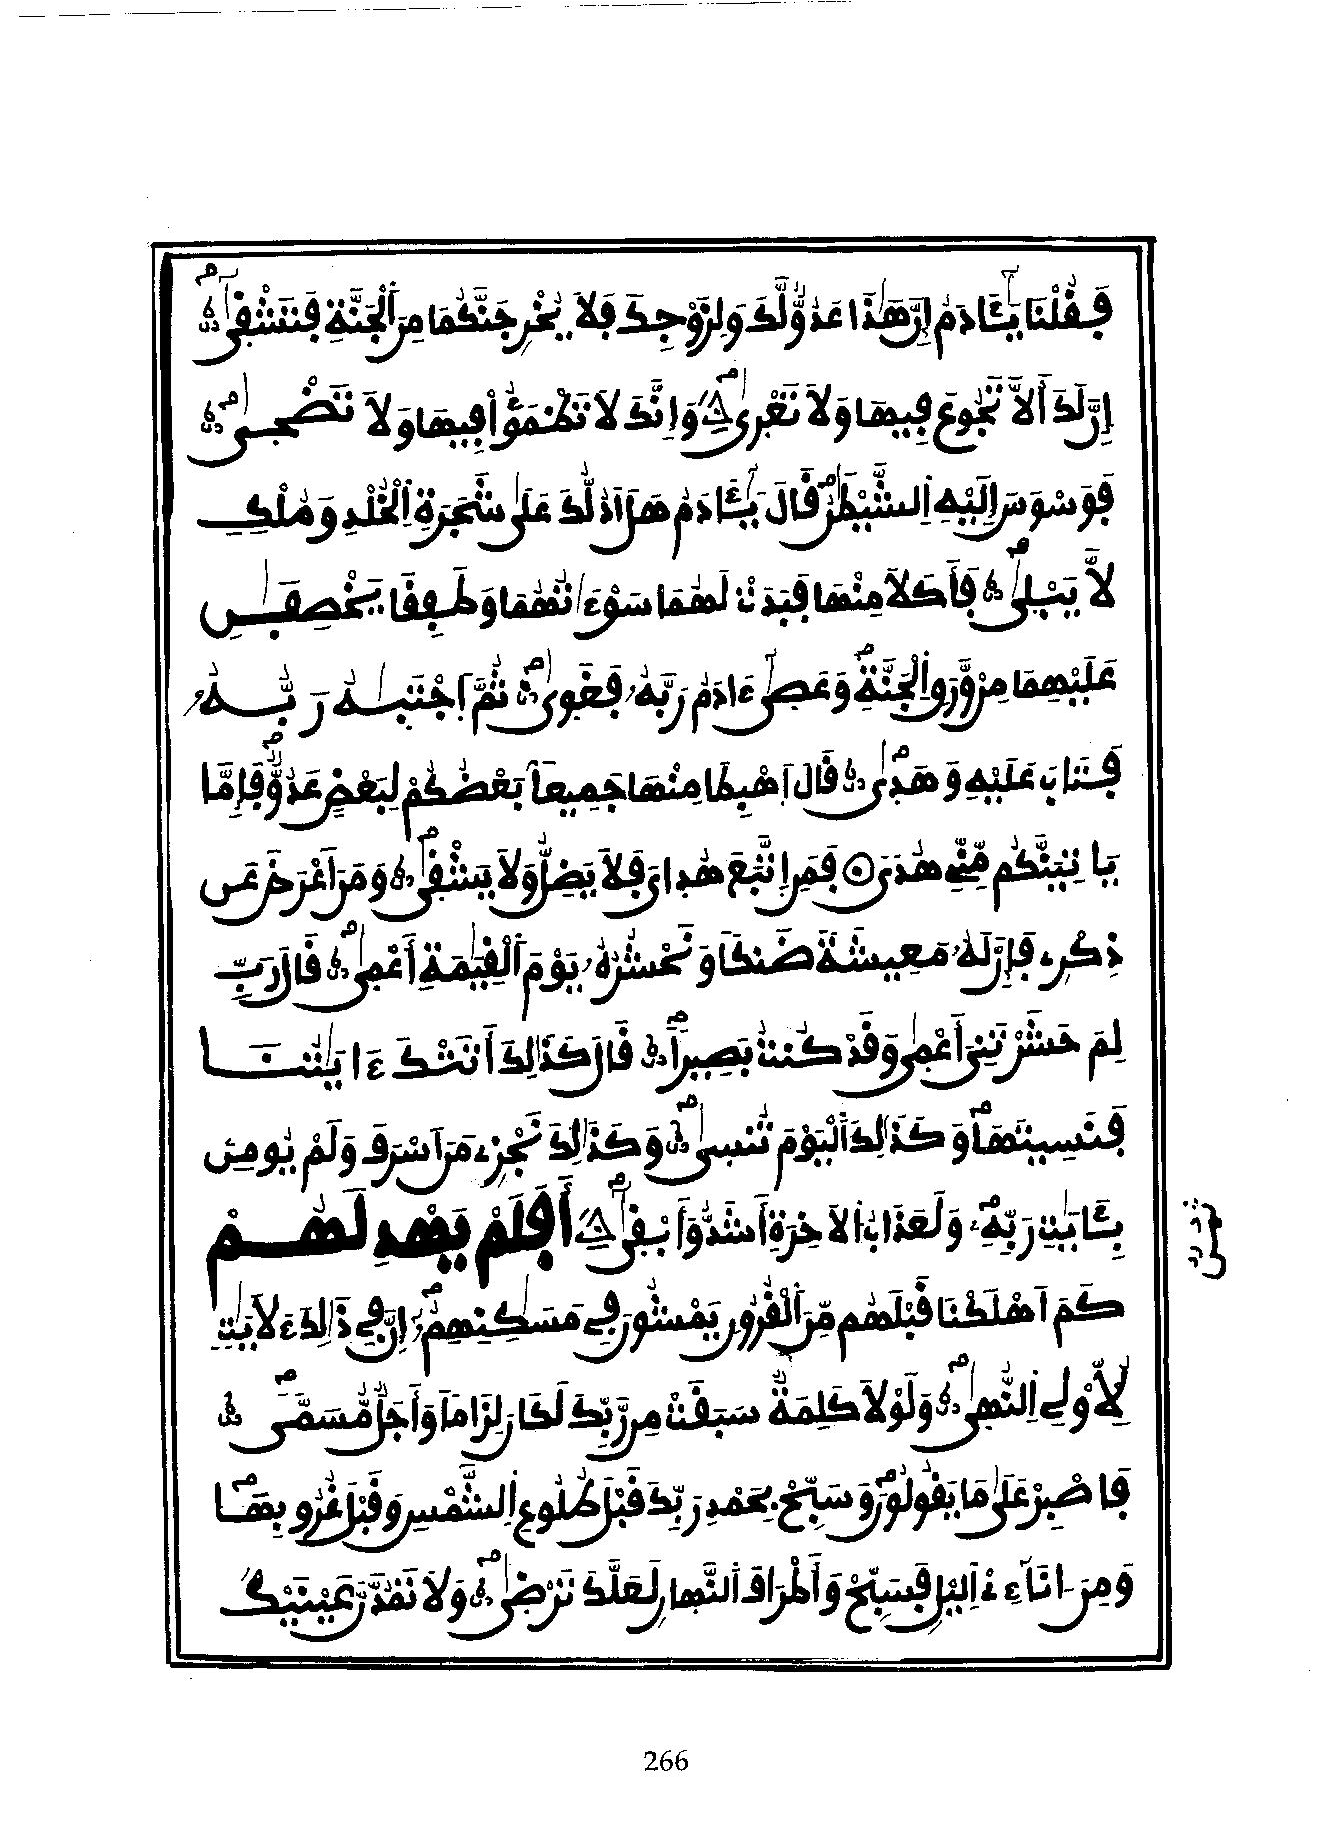 فَقُلْنَا يَٰٓـَٔادَمُ إِنَّ هَٰذَا عَدُوٌّ لَّكَ وَلِزَوْجِكَ فَلَا يُخْرِجَنَّكُمَا مِنَ ٱلْجَنَّةِ فَتَشْقَىٰٓ
إِنَّ لَكَ أَلَّا تَجُوعَ فِيهَا وَلَا تَعْرَىٰ وَإِنَّكَ لَا تَظْمَؤُا۟ فِيهَا وَلَا تَضْحَىٰ
فَوَسْوَسَ إِلَيْهِ ٱلشَّيْطَٰنُ قَالَ يَٰٓـَٔادَمُ هَلَ اَدُلُّكَ عَلَىٰ شَجَرَةِ ٱلْخُلْدِ وَمُلْكٍ
لَّا يَبْلَىٰ فَأَكَلَا مِنْهَا فَبَدَتْ لَهُمَا سَوْءَٰتُهُمَا وَطَفِقَا يَخْصِفَٰنِ
عَلَيْهِمَا مِنْ وَّرَقِ ٱلْجَنَّةِ وَعَصَىٰٓ ءَادَمُ رَبَّهُۥ فَغَوَىٰ ثُمَّ اَجْتَبَٰهُ رَبُّهُۥ
فَتَابَ عَلَيْهِ وَهَدَىٰ قَالَ اَهْبِطَا مِنْهَا جَمِيعَاۢ بَعْضُكُمْ لِبَعْضٍ عَدُوٌّ فَإِمَّا
يَاتِيَنَّكُم مِّنِّے هُدَى فَمَنِ اِتَّبَعَ هُدَايَ فَلَا يَضِلُّ وَلَا يَشْقَىٰ وَمَنَ اَعْرَضَ عَن
ذِكْرِے فَإِنَّ لَهُۥ مَعِيشَةً ضَنكًا وَنَحْشُرُهُۥ يَوْمَ ٱلْقِيَٰمَةِ أَعْمَىٰ قَالَ رَبِّ
لِمَ حَشَرْتَنِے أَعْمَىٰ وَقَدْ كُنتُ بَصِيرًا قَالَ كَذَٰلِكَ أَتَتْكَ ءَايَٰتُنَا
فَنَسِيتَهَا وَكَذَٰلِكَ ٱلْيَوْمَ تُنسَىٰ وَكَذَٰلِكَ نَجْزِے مَنَ اَسْرَفَ وَلَمْ يُومِنۢ
بِـَٔايَٰتِ رَبِّهِۦ وَلَعَذَابُ اُلَاخِرَةِ أَشَدُّ وَأَبْقَىٰٓ أَفَلَمْ يَهْدِ لَهُمْ
كَمَ اَهْلَكْنَا قَبْلَهُم مِّنَ ٱلْقُرُونِ يَمْشُونَ فِے مَسَٰكِنِهِمُۥٓ إِنَّ فِے ذَٰلِكَ ءَلَايَٰتٍ
لِّأُوْلِے اِلنُّهَىٰ وَلَوْلَا كَلِمَةٌ سَبَقَتْ مِن رَّبِّكَ لَكَانَ لِزَامًا وَأَجَلٌ مُّسَمّىً
فَاصْبِرْ عَلَىٰ مَا يَقُولُونَ وَسَبِّحْ بِحَمْدِ رَبِّكَ قَبْلَ طُلُوعِ اِلشَّمْسِ وَقَبْلَ غُرُوبِهَا
وَمِنَ اٰنَآءِےْ اِليْلِ فَسَبِّحْ وَأَطْرَافَ اَلنَّهَارِ لَعَلَّكَ تَرْضَىٰ وَلَا تَمُدَّنَّ عَيْنَيْكَ
266